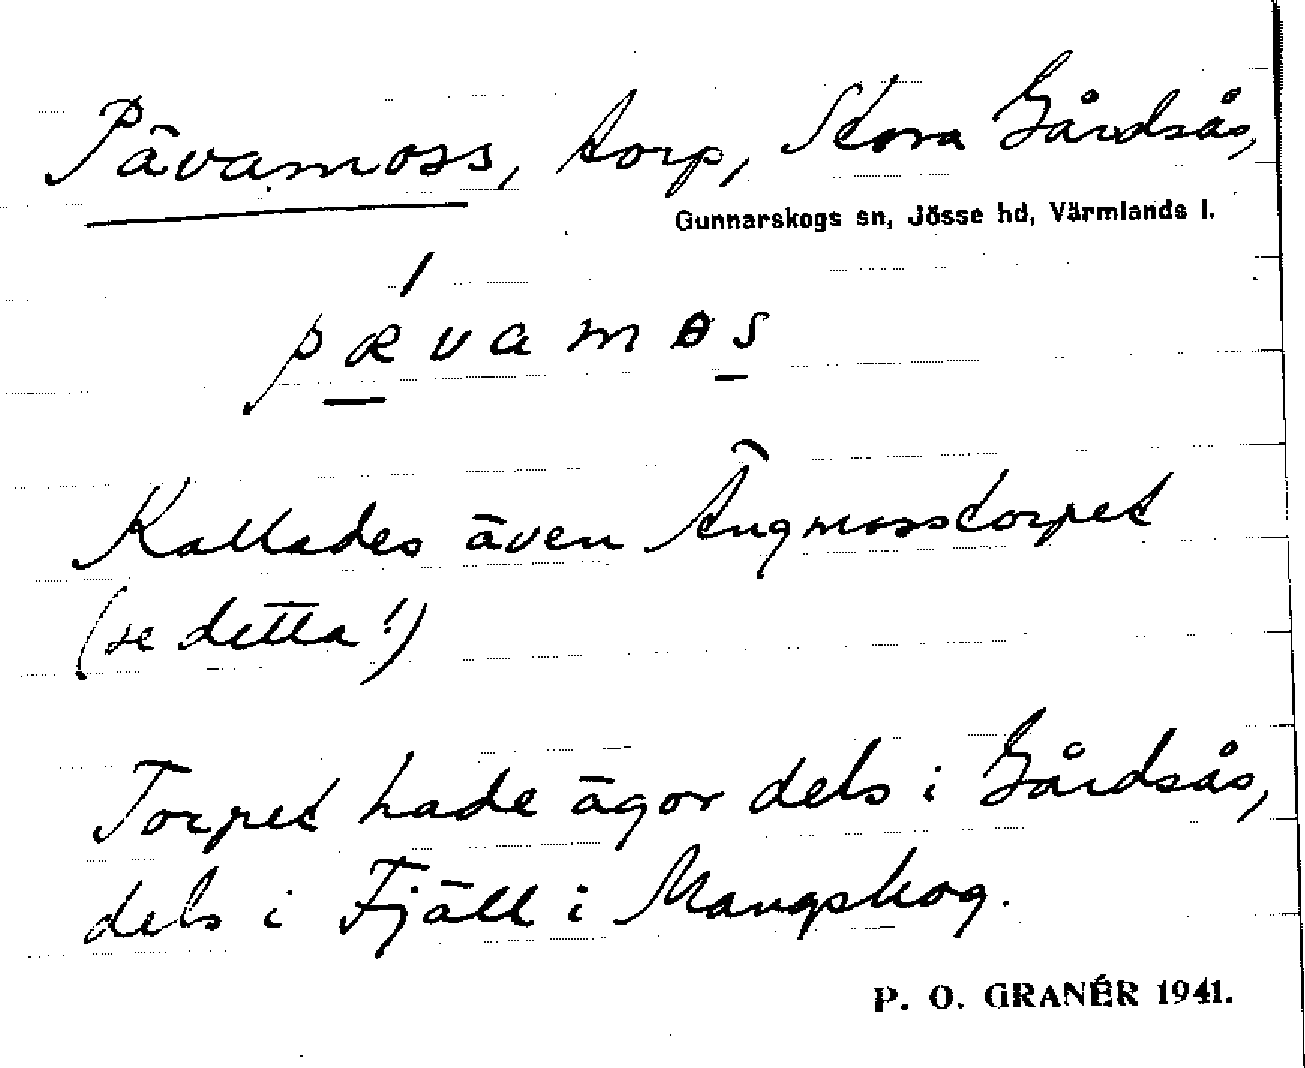 Pävamoss, torp, Stora Gårdsås,
Gunnarskogs sn, Jösse hd, Värmlands l.
pævamɵs
Kallades även Ängmosstorpet
(se detta!)
Torpet hade ägor dels i Gårdsås,
dels i Fjäll i Mangskog.
P. O. GRANÉR 1941.